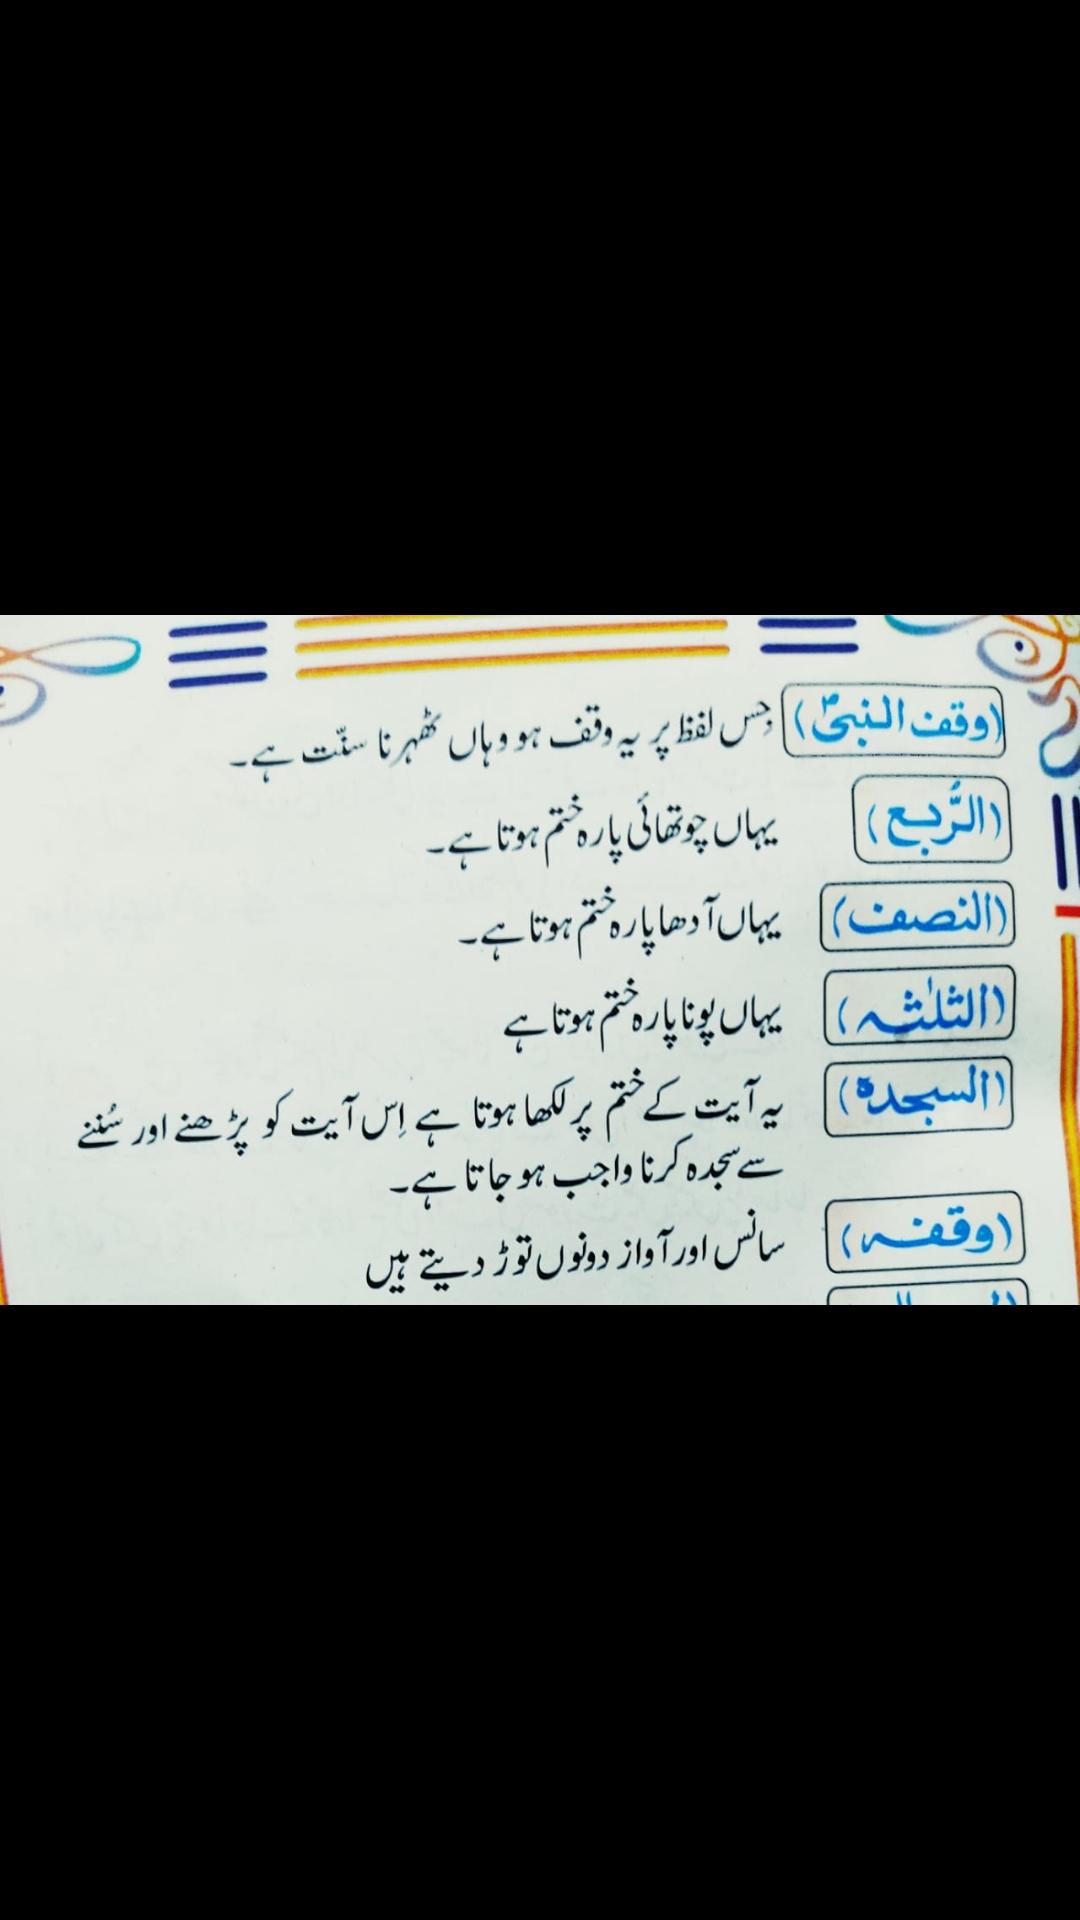 (وقف النبیؐ) جس لفظ پر یہ وقف ہو وہاں ٹھہرنا سنّت ہے۔
(الرُّبع) یہاں چوتھائی پارہ ختم ہوتا ہے۔
(النصف) یہاں آدھا پارہ ختم ہوتا ہے۔
(الثلٰثہ) یہاں پونا پارہ ختم ہوتا ہے
(السجدہ) یہ آیت کے ختم پر لکھا ہوتا ہے اِس آیت کو پڑھنے اور سُننے
سے سجدہ کرنا واجب ہو جاتا ہے۔
(وقفہ) سانس اور آواز دونوں توڑ دیتے ہیں